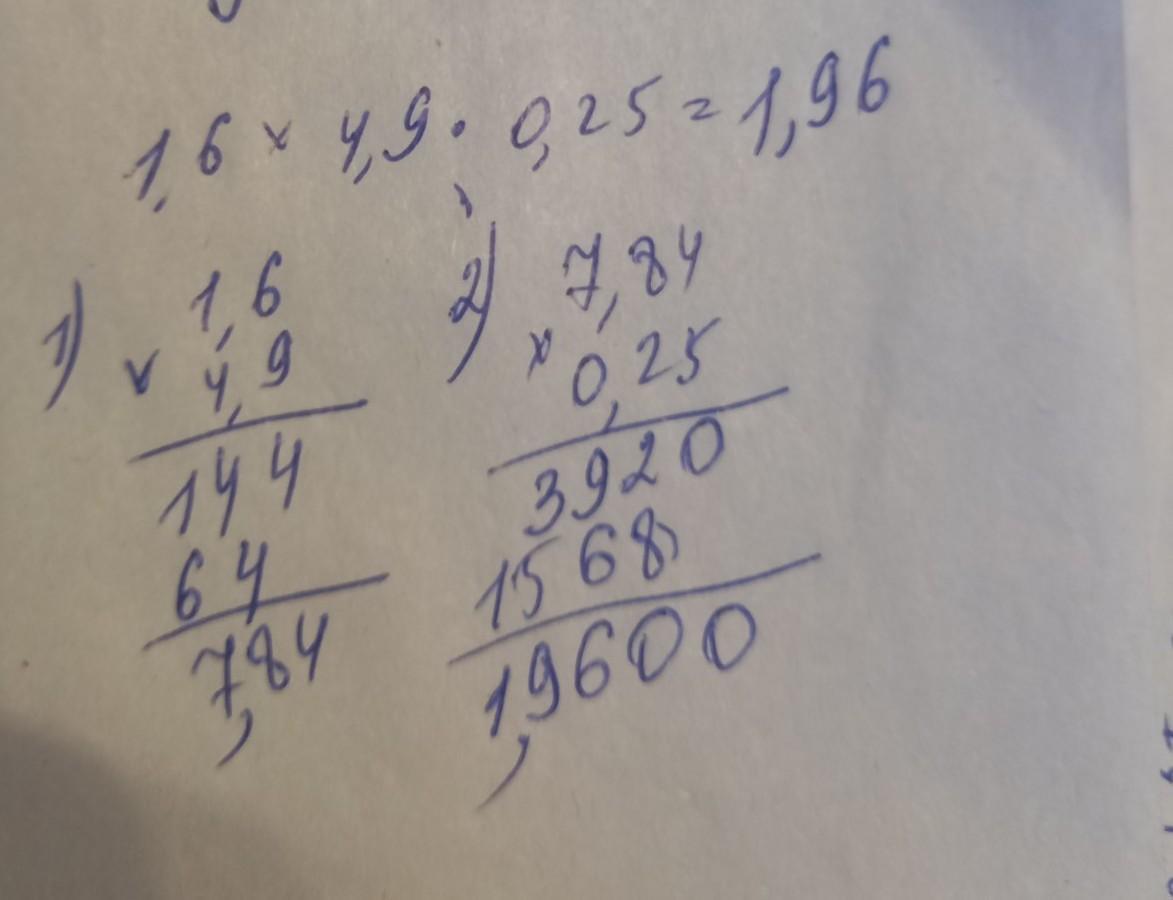 1,6 × 4,9 · 0,25 = 1,96
1) 1,6
× 4,9
144
64
7,84
2) 7,84
× 0,25
3920
1568
1,9600